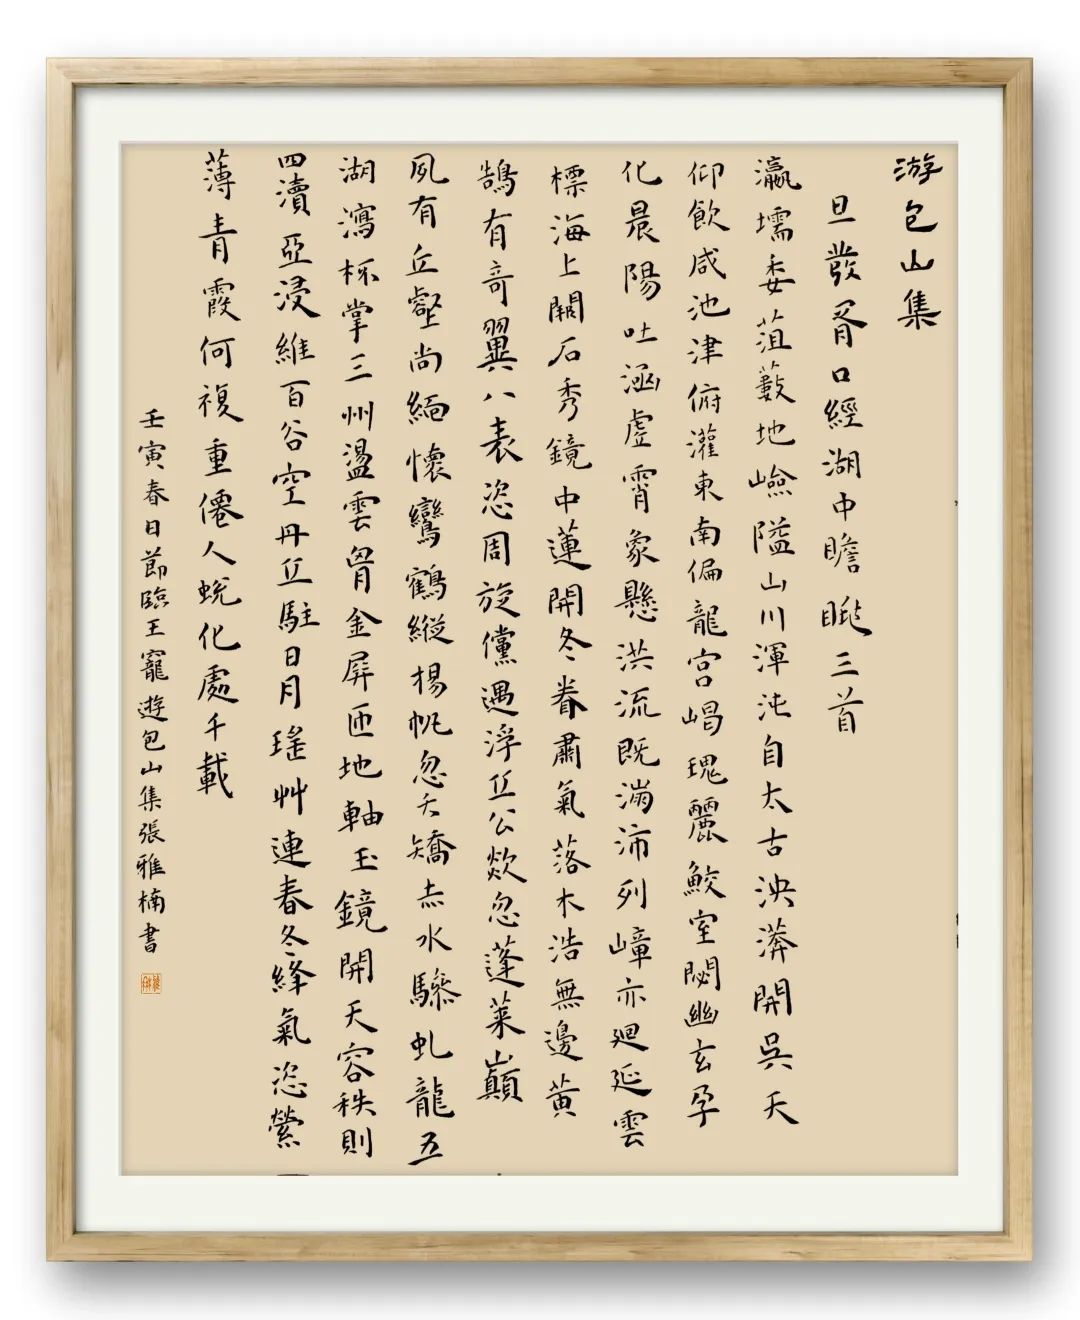 游包山集
旦發胥口經湖中瞻眺三首
瀛壖委菹藪地嶮隘山川渾沌自太古泱漭開吳天
仰飲咸池津俯灌東南偏龍宮崵瑰麗鮫室閟幽玄孕
化晨陽吐涵虛霄象懸洪流既滂沛列嶂亦廻延雲
標海上闕石秀鏡中蓮開冬眷肅氣落木浩無邊黃
鵠有奇翼八表恣周旋儻遇浮丘公欻忽蓬萊巔
夙有丘壑尚緬懷鸞鶴縱楊帆忽夭矯赤水驂虬龍五
湖瀉杯掌三州盪雲胷金屏匝地軸玉鏡開天容秩則
四瀆亞浸維百谷空丹丘駐日月瑤艸連春冬絳氣恣縈
薄青霞何複重僊人蛻化處千載
壬寅春日節臨王寵遊包山集張雅楠書